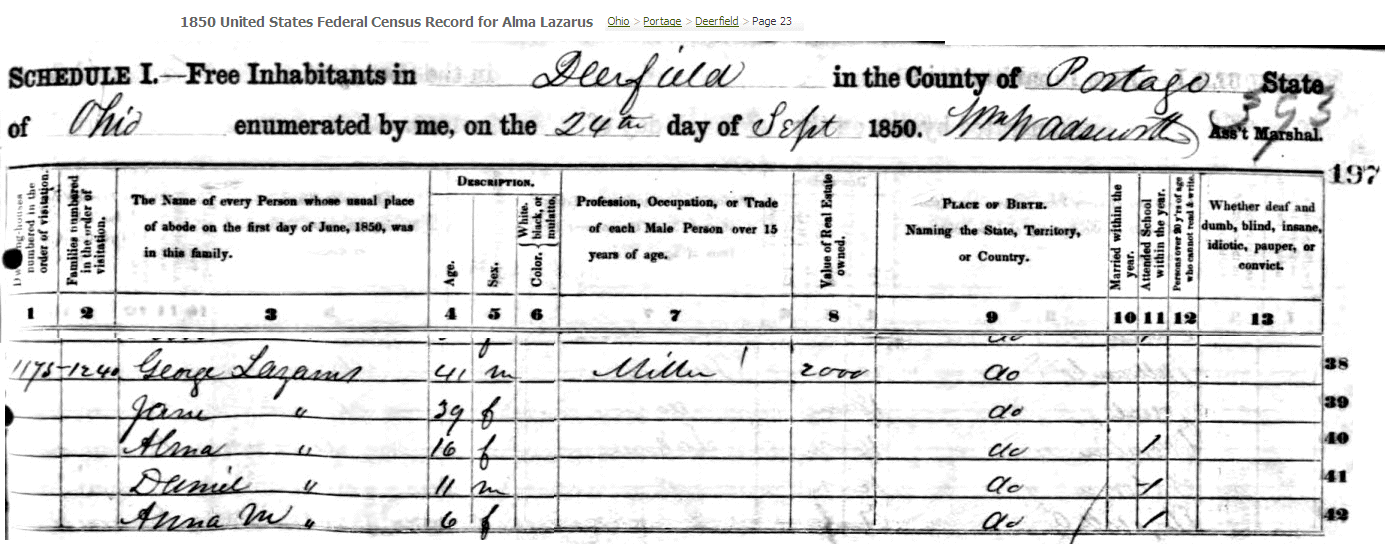 1850 United States Federal Census Record for Alma Lazarus Ohio > Portage > Deerfield > Page 23
SCHEDULE I.—Free Inhabitants in Deerfield in the County of Portage State
of Ohio enumerated by me, on the 24th day of Sept 1850. Wm Wadsworth Ass't Marshal.
393
197
Dwelling-houses numbered in the order of visitation.
Families numbered in the order of visitation.
The Name of every Person whose usual place
of abode on the first day of June, 1850, was
in this family.
DESCRIPTION.
Age.
Sex.
Color. { White, black, or mulatto.
Profession, Occupation, or Trade
of each Male Person over 15
years of age.
Value of Real Estate owned.
PLACE OF BIRTH.
Naming the State, Territory,
or Country.
Married within the year.
Attended School within the year.
Persons over 20 y'rs of age who cannot read & write.
Whether deaf and
dumb, blind, insane,
idiotic, pauper, or
convict.
1 2 3 4 5 6 7 8 9 10 11 12 13
1175-1240 George Lazarus 41 m Miller 2000 do 38
Jane " 39 f do 39
Alma " 16 f do / 40
Daniel " 11 m do / 41
Anna M " 6 f do / 42